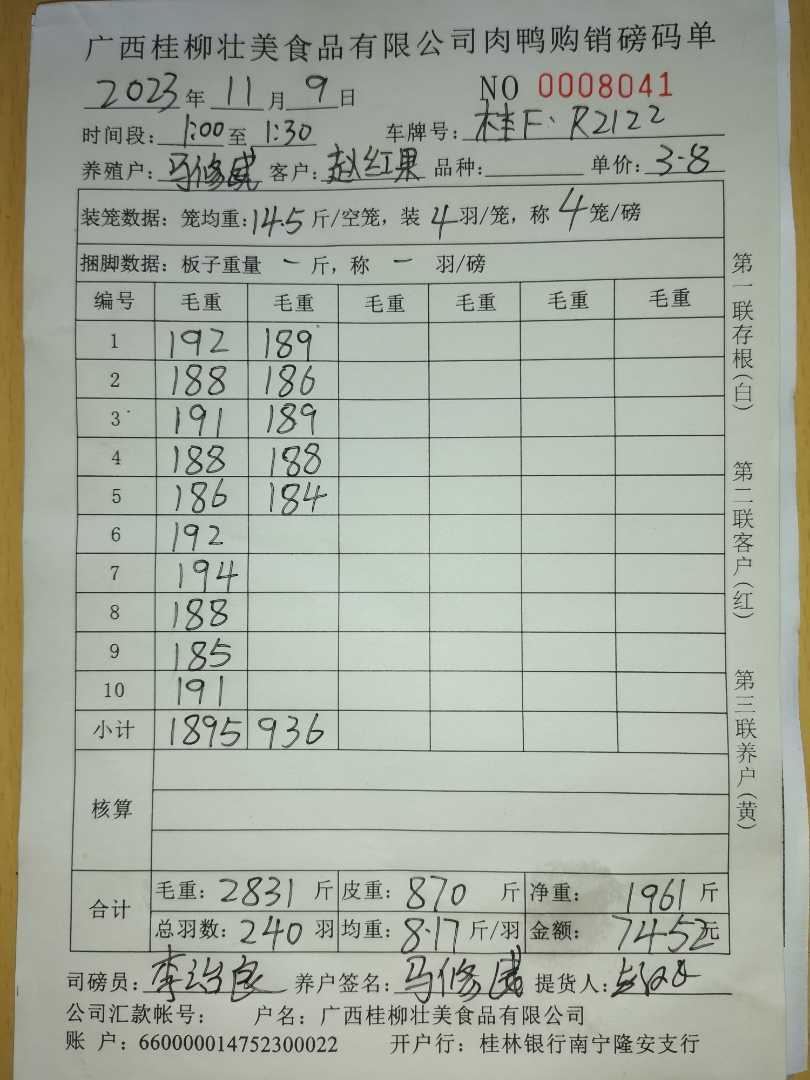 广西桂柳壮美食品有限公司肉鸭购销磅码单
2023年11月9日 NO 0008041
时间段：1:00至1:30 车牌号：桂F·R2122
养殖户：马修威 客户：赵红果 品种： 单价：3.8
装笼数据：笼均重：14.5斤/空笼，装4羽/笼，称4笼/磅
捆脚数据：板子重量 一 斤，称 一 羽/磅
编号 毛重 毛重 毛重 毛重 毛重 毛重
1 192 189
2 188 186
3 191 189
4 188 188
5 186 184
6 192
7 194
8 188
9 185
10 191
小计 1895 936
核算
合计 毛重：2831斤 皮重：870斤 净重：1961斤
总羽数：240羽 均重：8.17斤/羽 金额：7452元
司磅员：李治良 养户签名：马修威 提货人：
公司汇款帐号： 户名：广西桂柳壮美食品有限公司
账 户：660000014752300022 开户行：桂林银行南宁隆安支行
第一联存根（白） 第二联客户（红） 第三联养户（黄）